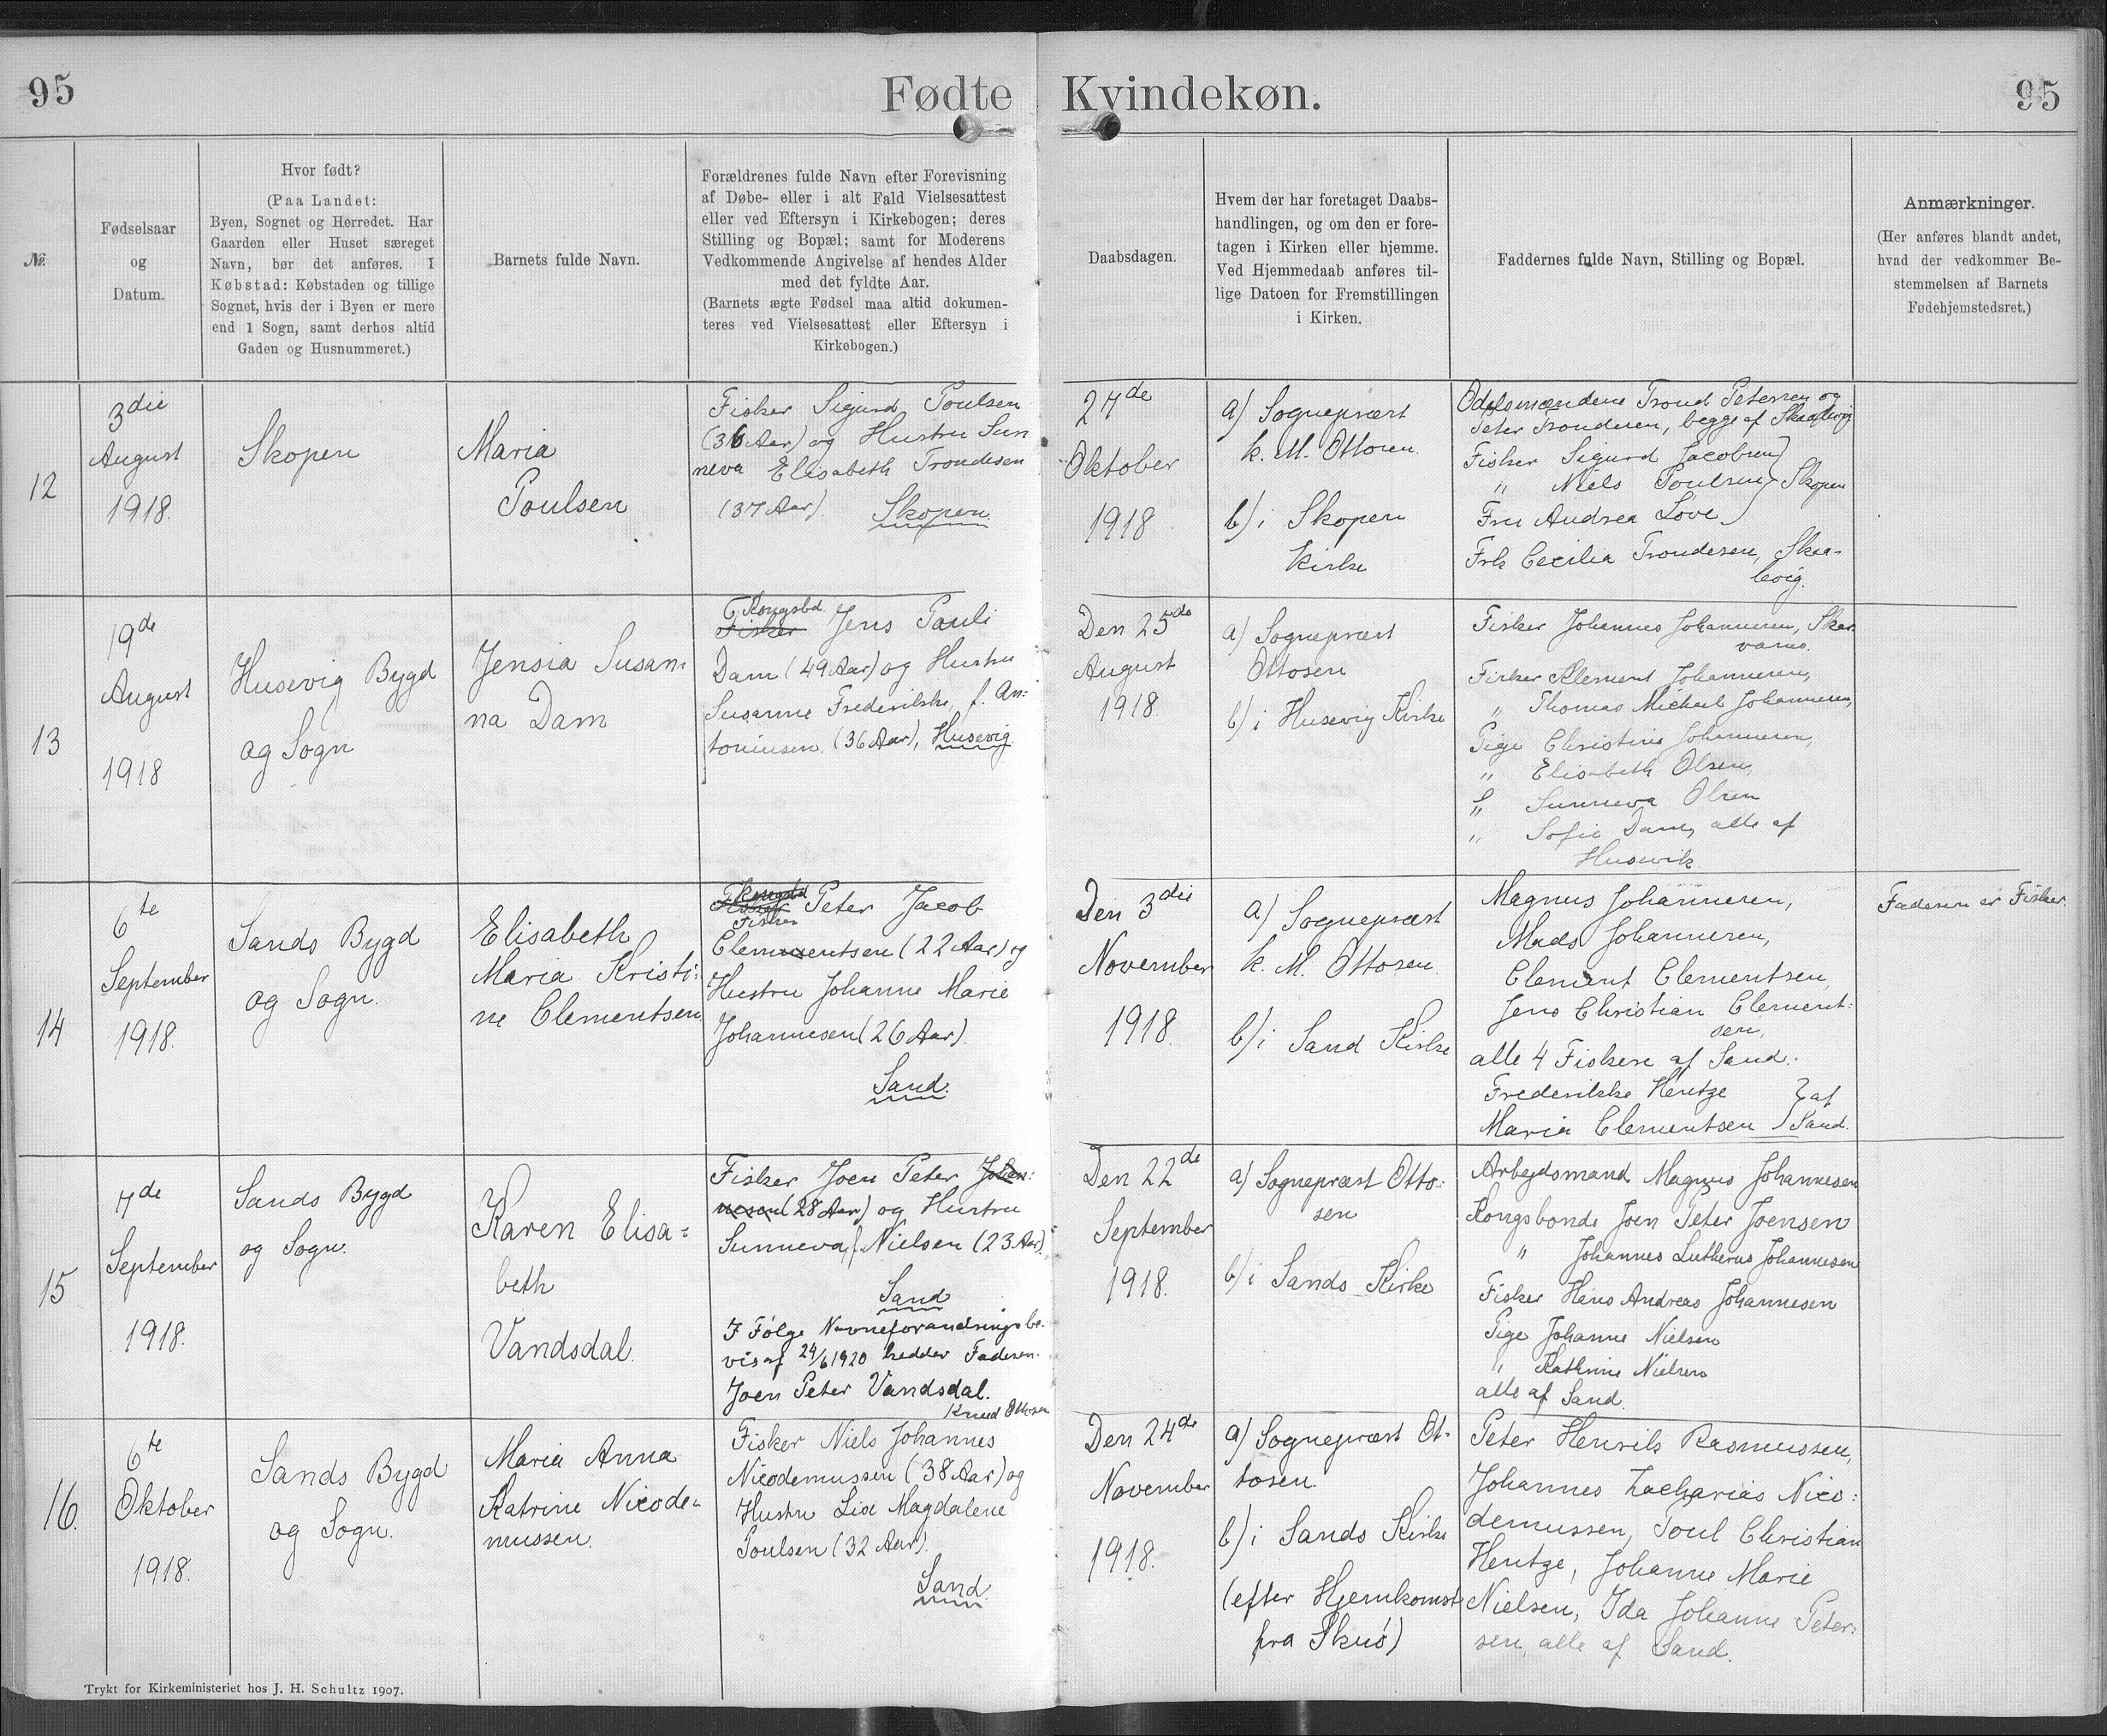 95
Fødte
Kvindekøn.
95
№.
Fødselsaar
og
Datum.
Hvor født?
(Paa Landet:
Byen, Sognet og Herredet. Har
Gaarden eller Huset særeget
Navn, bør det anføres. I
Købstad: Købstaden og tillige
Sognet, hvis der i Byen er mere
end 1 Sogn, samt derhos altid
Gaden og Husnummeret.)
Barnets fulde Navn.
Forældrenes fulde Navn efter Forevisning
af Døbe- eller i alt Fald Vielsesattest
eller ved Eftersyn i Kirkebogen; deres
Stilling og Bopæl; samt for Moderens
Vedkommende Angivelse af hendes Alder
med det fyldte Aar.
(Barnets ægte Fødsel maa altid dokumen-
teres ved Vielsesattest eller Eftersyn i
Kirkebogen.)
Daabsdagen.
Hvem der har foretaget Daabs-
handlingen, og om den er fore-
tagen i Kirken eller hjemme.
Ved Hjemmedaab anføres til-
lige Datoen for Fremstillingen
i Kirken.
Faddernes fulde Navn, Stilling og Bopæl.
Anmærkninger.
(Her anføres blandt andet,
hvad der vedkommer Be-
stemmelsen af Barnets
Fødehjemstedsret.)
12
3die
August
1918.
Skopen
Maria
Poulsen
Fisker Sigurd Poulsen
(36 Aar) og Hustru Sun
neva Elisabeth Trondesen
(37 Aar). Skopen
27de
Oktober
1918
a) Sognepræst
K. M. Ottosen.
b) i Skopen
Kirke
Odelsmændene Trond Petersen og
Peter Trondesen, begge af Skaalevig
Fisker Sigurd Jacobsen
" Niels Poulsen } Skopen
Fru Andrea Løve
Frk Cecilia Trondesen, Skaa-
levig.
13
19de
August
1918
Husevig Bygd
og Sogn
Jensia Susan-
na Dam
Kongsbd
Fisker Jens Pauli
Dam (49 Aar) og Hustru
Susanne Frederikke, f. An-
toniusen (36 Aar), Husevig
Den 25de
August
1918.
a) Sognepræst
Ottosen
b) i Husevig Kirke
Fisker Johannes Johannesen, Skar
vanes.
Fisker Klement Johannesen,
" Thomas Michael Johannesen,
Pige Christine Johannesen,
" Elisabeth Olsen,
" Sunneva Olsen
" Sofie Dam, alle af
Husevik.
14
6te
September
1918.
Sands Bygd
og Sogn.
Elisabeth
Maria Kristi-
ne Clementsen
Kongsbd
Fisker Peter Jacob
Fisker
Clementsen (22 Aar) og
Hustru Johanne Marie
Johannesen (26 Aar).
Sand.
Den 3die
November
1918.
a) Sognepræst
K. M. Ottosen.
b) i Sand Kirke
Magnus Johannesen,
Mads Johannesen,
Clement Clementsen,
Jens Christian Clement-
sen,
alle 4 Fiskere af Sand.
Frederikke Hentze } af
Maria Clementsen } Sand.
Faderen er Fisker.
15
7de
September
1918.
Sands Bygd
og Sogn.
Karen Elisa-
beth
Vandsdal.
Fisker Joen Peter Johan-
nesen (28 Aar) og Hustru
Sunneva f. Nielsen (23 Aar).
Sand
I Følge Navneforandringsbe-
vis af 24/6 1920 hedder Faderen
Joen Peter Vandsdal.
Knud Ottosen
Den 22de
September
1918.
a) Sognepræst Otto-
sen
b) i Sands Kirke
Arbejdsmand Magnus Johannesen
Kongsbonde Joen Peter Joensen
" Johannes Lutherus Johannesen
Fisker Hans Andreas Johannesen
Pige Johanne Nielsen
" Kathrine Nielsen
alle af Sand.
16.
6te
Oktober
1918.
Sands Bygd
og Sogn.
Maria Anna
Katrine Nicode-
mussen.
Fisker Niels Johannes
Nicodemussen (38 Aar) og
Hustru Lise Magdalene
Poulsen (32 Aar).
Sand.
Den 24de
November
1918.
a) Sognepræst Ot-
tosen.
b) i Sands Kirke
(efter Hjemkomst
fra Skuø)
Peter Henrik Rasmussen,
Johannes Zacharias Nico-
demussen, Poul Christian
Hentze, Johanne Marie
Nielsen, Ida Johanne Peter-
sen, alle af Sand.
Trykt for Kirkeministeriet hos J. H. Schultz 1907.